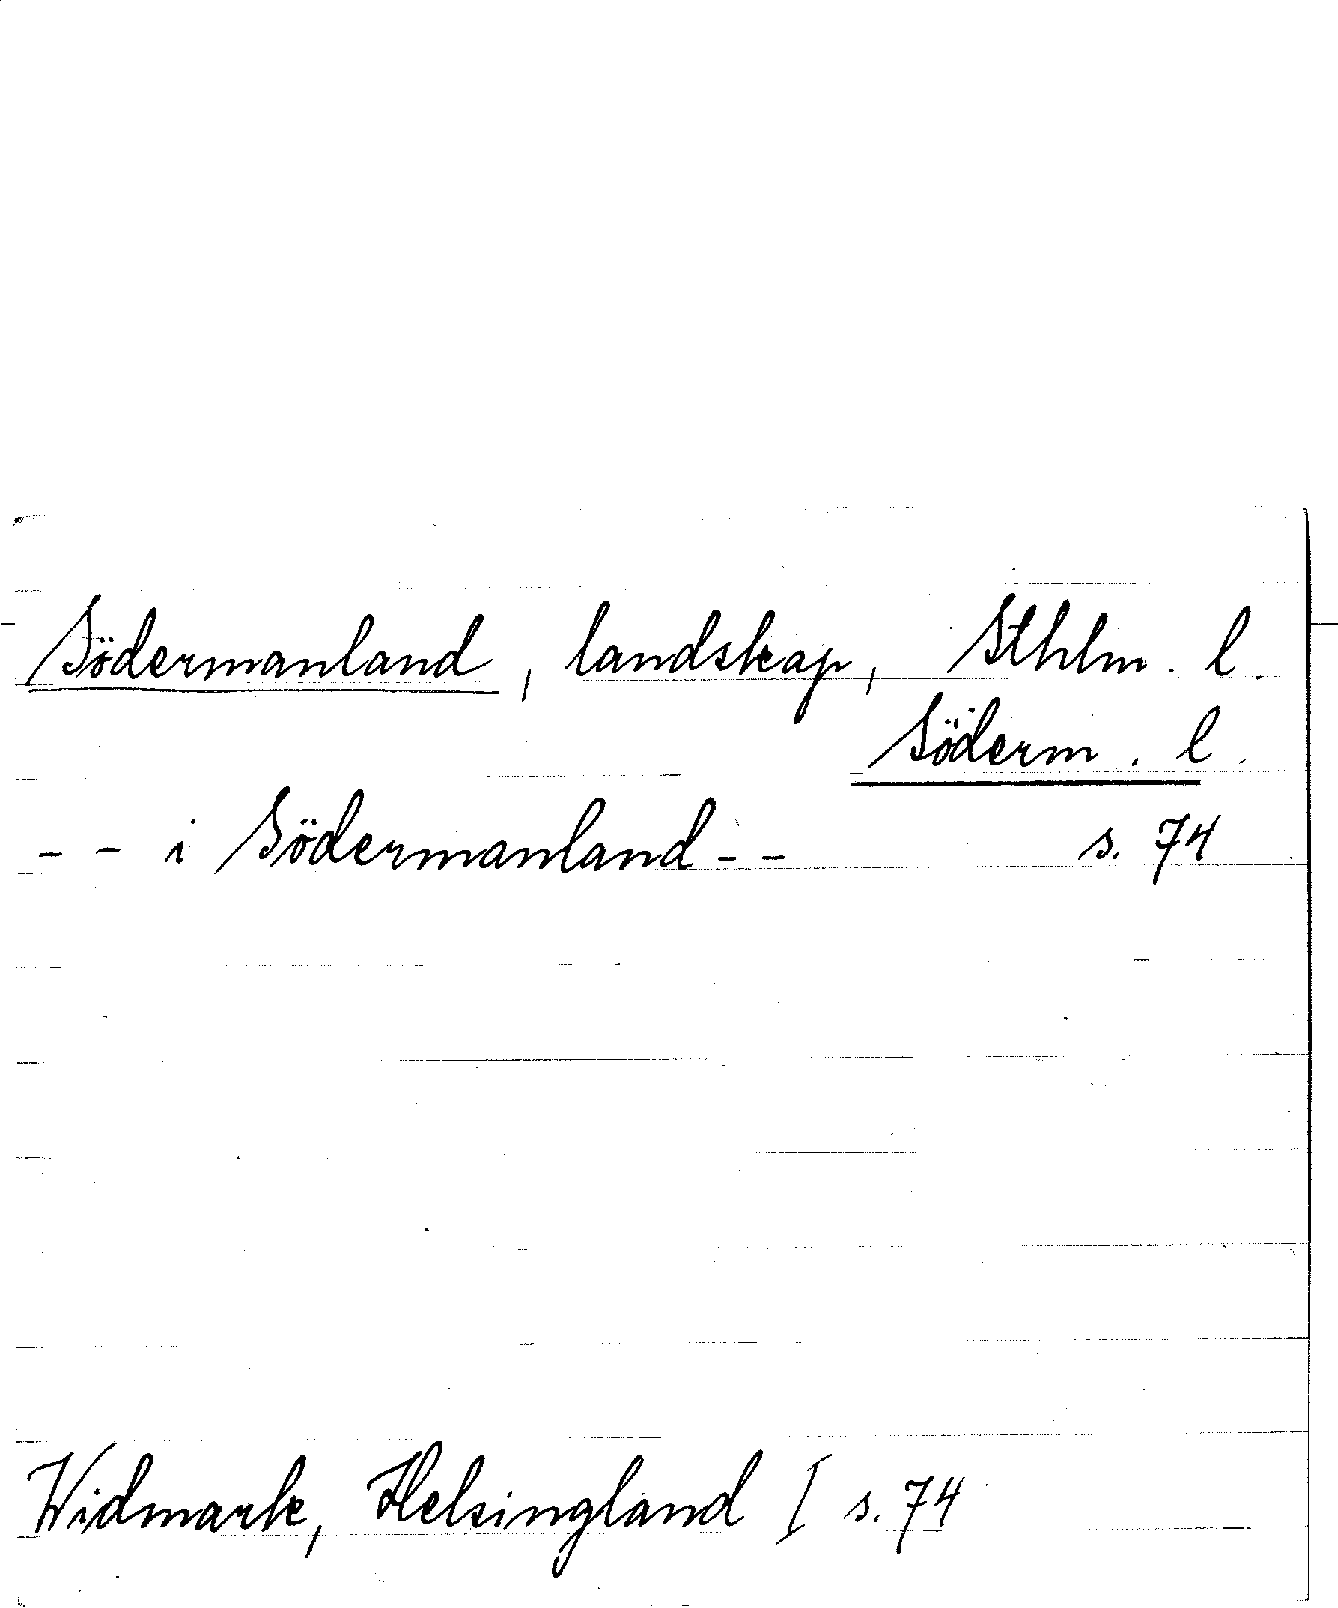 Södermanland, landskap, Sthlm. l.
Söderm. l.
-- i Södermanland -- s. 74
Widmark, Helsingland I s. 74